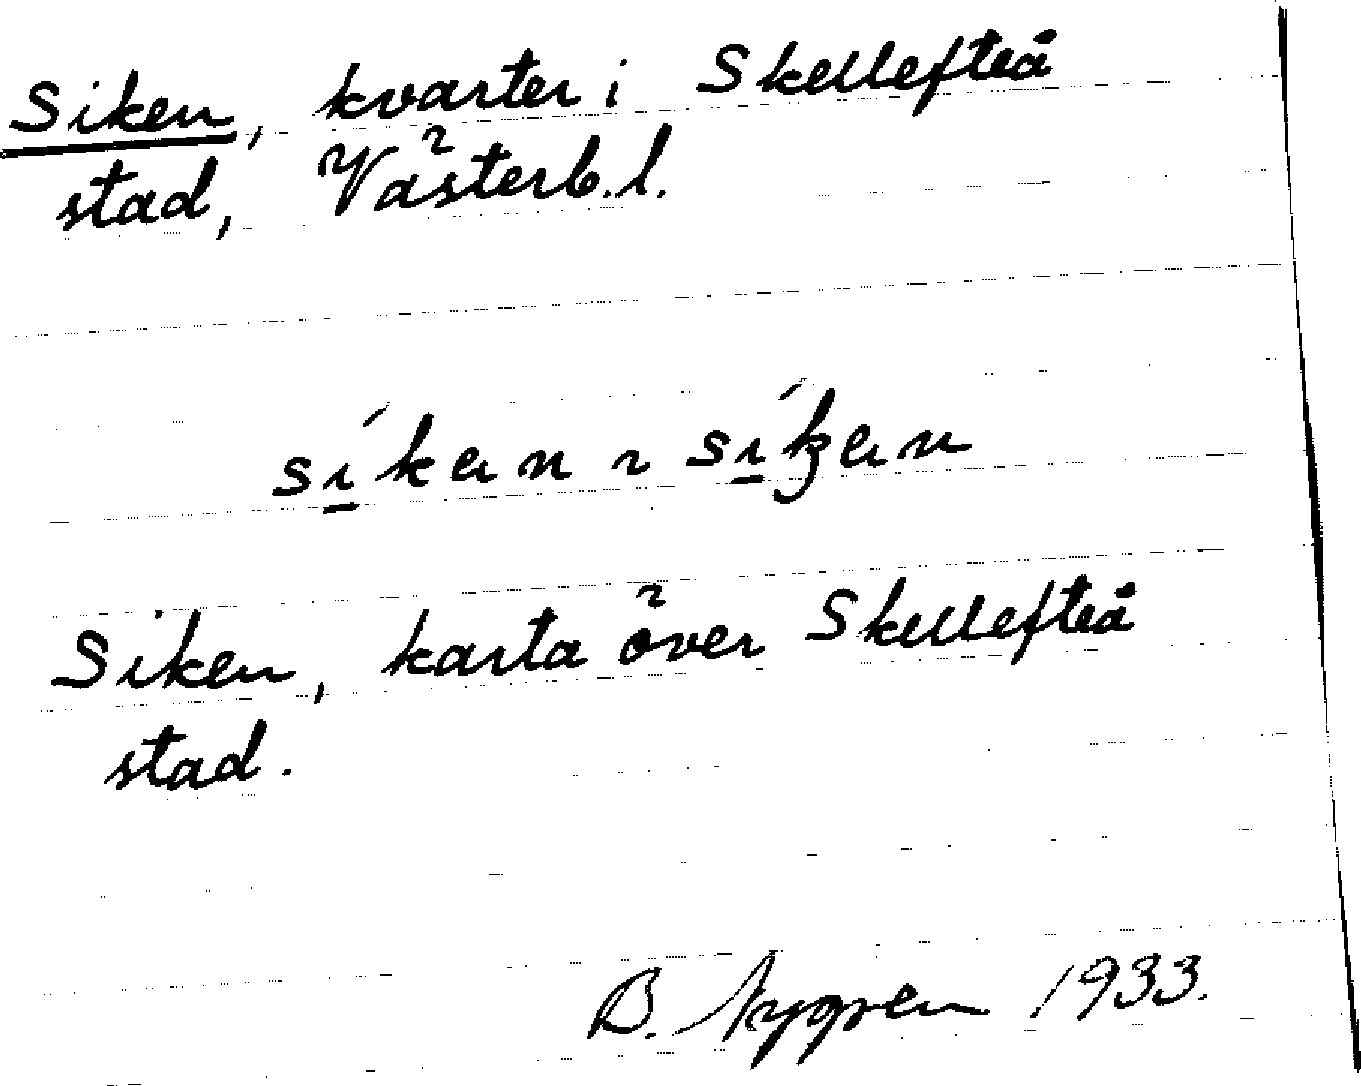 Siken, kvarter i Skellefteå
stad, Västerb.l.
Siken, karta över Skellefteå
stad.
B. Nygren 1933.